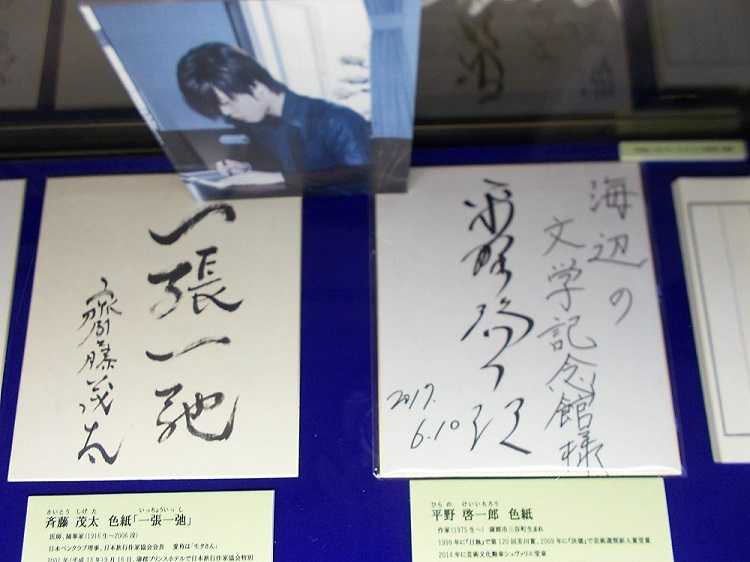 一張一弛
齋藤茂太
海辺の
文学記念館様
平野啓一郎
2017.
6.10
さいとう しげた いっちょういっし
斉藤 茂太 色紙「一張一弛」
医師、随筆家(1916生~2006没)
日本ペンクラブ理事、日本旅行作家協会会長 愛称は「モタさん」
蒲郡プリンスホテルで日本旅行作家協会
ひらの けいいちろう
平野 啓一郎 色紙
作家(1975生~) 蒲郡市三谷町生まれ
1999年に『日蝕』で第120回芥川賞、2009年に『決壊』で芸術選奨新人賞受賞
2014年に芸術文化勲章シュヴァリエ受章